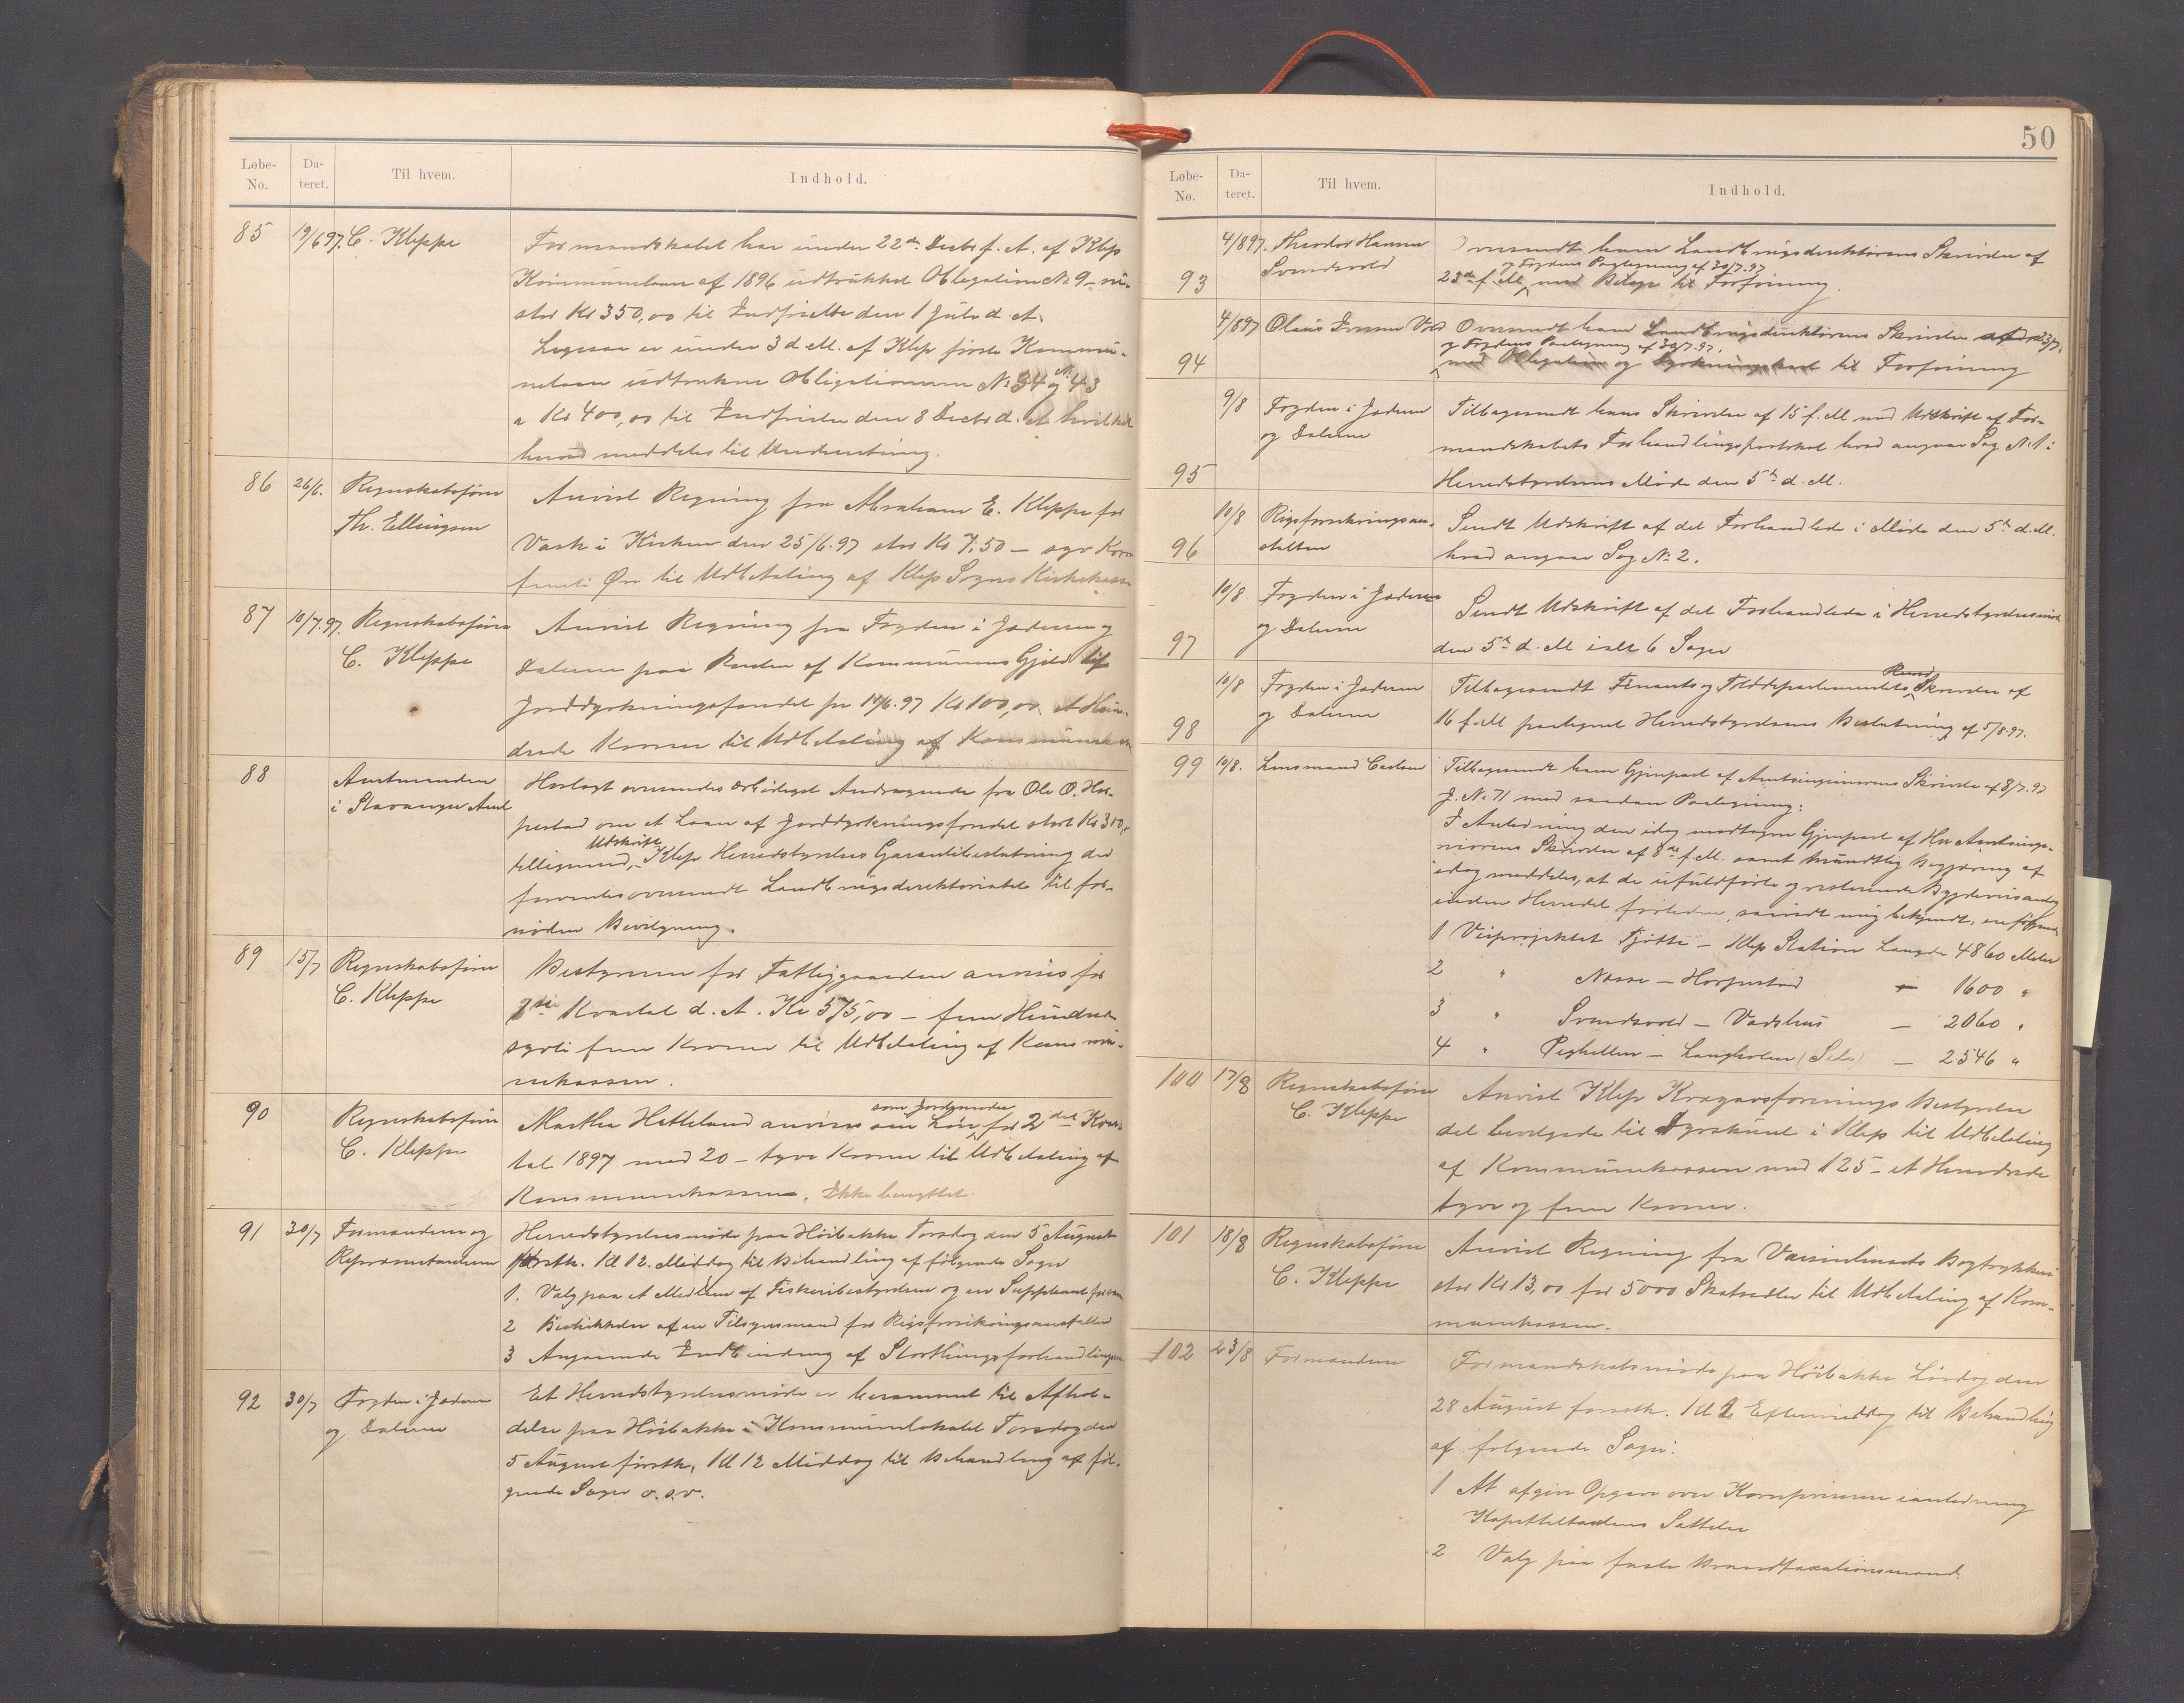 Løbe-
No.
Da-
teret.
Til hvem.
Indhold.
85 19/6 97. C. Kleppe
Formandskabet har under 22de Decbr f. A. af Klep
Kommunelaan af 1896 udtrukket Obligation No 9 –
stor Kr 350,00 til Indfrielse den 1 Juli d. A.
Ligesaa er under 3 d M. af Klep første Kommu-
nelaan udtrukne Obligationerne No 34 og No 43
a Kr 400,00 til Indfrielse den 8 Decbr d. A. hvilket
herved meddeles til Underretning.
86 26/6. Regnskabsfører
Th. Ellingsen
Anvist Regning fra Abraham E. Kleppe for
Vask i Kirken den 25/6.97 stor Kr 7,50 – syv Kron
femti Øre til Udbetaling af Klep Sogns Kirkekasse
87 10/7.97. Regnskabsfører
C. Kleppe
Anvist Regning fra Fogden i Jæderen og
Dalerne paa Renter af Kommunens Gjeld til
Jorddyrkningsfondet pr 11/6.97 Kr 100,00 Et Hun-
drede Kroner til Udbetaling af Kommunekassen
88
Amtmanden
i Stavanger Amt
Hoslagt oversendes ærbødigst Andragende fra Ole O. Hor-
pestad om et Laan af Jorddyrkningsfondet stort Kr 300,
Udskrift
tilligemed Klep Herredstyrelses Garantibeslutning der
forventes oversendt Landbrugsdirektoriatet til for-
nøden Bevilgning.
89 15/7
Regnskabsfører
C. Kleppe
Bestyreren for Fattiggaarden anvises for
Kvartal d. A. Kr 575,00 – fem Hundrede
sytti fem Kroner til Udbetaling af Kommu-
nekassen.
90
Regnskabsfører
C. Kleppe
som Jordmoder
Marthe Hetteland anvises sin Løn for 2det Kvar-
tal 1897 med 20 – tyve Kroner til Udbetaling af
Kommunekassen. Ikke benyttet.
91 30/7
Formændene og
Repræsentanterne
Herredstyrelsesmøde paa Høibakke Torsdag den 5 August
førstk. Kl 12. Middag til Behandling af følgende Sager
1. Valg paa et Medlem af Fiskeribestyrelsen og en Suppleant for
2 Beskikkelse af en Tilsynsmand for Rigsforsikringsanstalten
3 Angaaende Indbinding af Storthingsforhandlinger
92 30/7
Fogden i Jæderen
og Dalerne
Et Herredstyrelsesmøde er berammet til Afhol-
delse paa Høibakke i Kommunelokalet Torsdag den
5 August førstk. Kl 12 Middag til Behandling af føl-
gende Sager o.s.v.
50
Løbe-
No.
Da-
teret.
Til hvem.
Indhold.
93 4/8 97. Theodor Hansen
Svendsvold
Oversendt ham Landbrugsdirektørens Skrivelse af
og Fogdens Paategning af 30/7.97
23de f. M med Bilage til Forføining.
94 4/8 97 Olaus Iversen Vold
Oversendt ham Landbrugsdirektørens Skrivelse af 23/7.
og Fogdens Paategning af 30/7.97.
med Obligation og Dyrkningskart til Forføining
95 9/8 Fogden i Jæderen
og Dalerne
Tilbagesendt hans Skrivelse af 15 f. M med Udskrift af For-
mandskabets Forhandlingsprotokol hvad angaar Sag No 1 i
Herredstyrelsens Møde den 5te d. M.
96 10/8 Rigsforsikringsan-
stalten
Sendt Udskrift af det Forhandlede i Møde den 5te d. M.
hvad angaar Sag No 2.
97 10/8 Fogden i Jæderen
og Dalerne
Sendt Udskrift af det Forhandlede i Herredstyrelsesmøde
den 5te d. M ialt 6 Sager
98 10/8 Fogden i Jæderen
og Dalerne
Rund
Tilbagesendt Finants og Tolddepartementets Skrivelse af
16 f. M paategnet Herredstyrelsens Beslutning af 5/8.97.
99 10/8. Lensmand Carlsen
Tilbagesendt ham Gjenpart af Amtsingeniørens Skrivelse af 8/7.97
J. No 71 med saadan Paategning:
I Anledning den idag modtagne Gjenpart af Hr Amtsinge-
niørens Skrivelse af 8de f. M. samt mundtlig Begjæring af
idag meddeles, at de ufuldførte og resterende Bygdeveisanlæg
inden Herredet forleden, saavidt mig bekjendt, ere følgende
1 Veiprojektet Tjøtta – Klep Station Længde 4860 Meter
2 " Næsse – Horpestad – 1600 "
3 " Svendsvold – Vadshus – 2060 "
4 " Pighellen – Langholen (Sele) – 2546 "
100 17/8 Regnskabsfører
C. Kleppe
Anvist Klep Kvægavlsforenings Bestyrelse
det bevilgede til Dyrskuet i Klep til Udbetaling
af Kommunekassen med 125 – et Hundrede
tyve og fem Kroner.
101 18/8 Regnskabsfører
C. Kleppe
Anvist Regning fra Vaisenhusets Bogtrykkeri
stor Kr 13,00 for 5000 Skatsedler til Udbetaling af Kom-
munekassen.
102 23/8 Formændene
Formandskabsmøde paa Høibakke Lørdag den
28 August førstk. Kl 2 Eftermiddag til Behandling
af følgende Sager:
1 At afgive Opgave over Kornpriserne ianledning
Kapitelstaxtens Sættelse
2 Valg paa faste Brandtaxationsmænd.